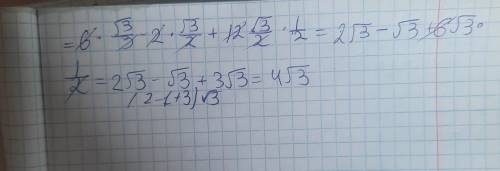 = 6 · √3/3 - 2 · √3/2 + 12 √3/2 · 1/2 = 2√3 - √3 + 6√3 ·
1/2 = 2√3 - √3 + 3√3 = 4√3
(2-1+3)√3